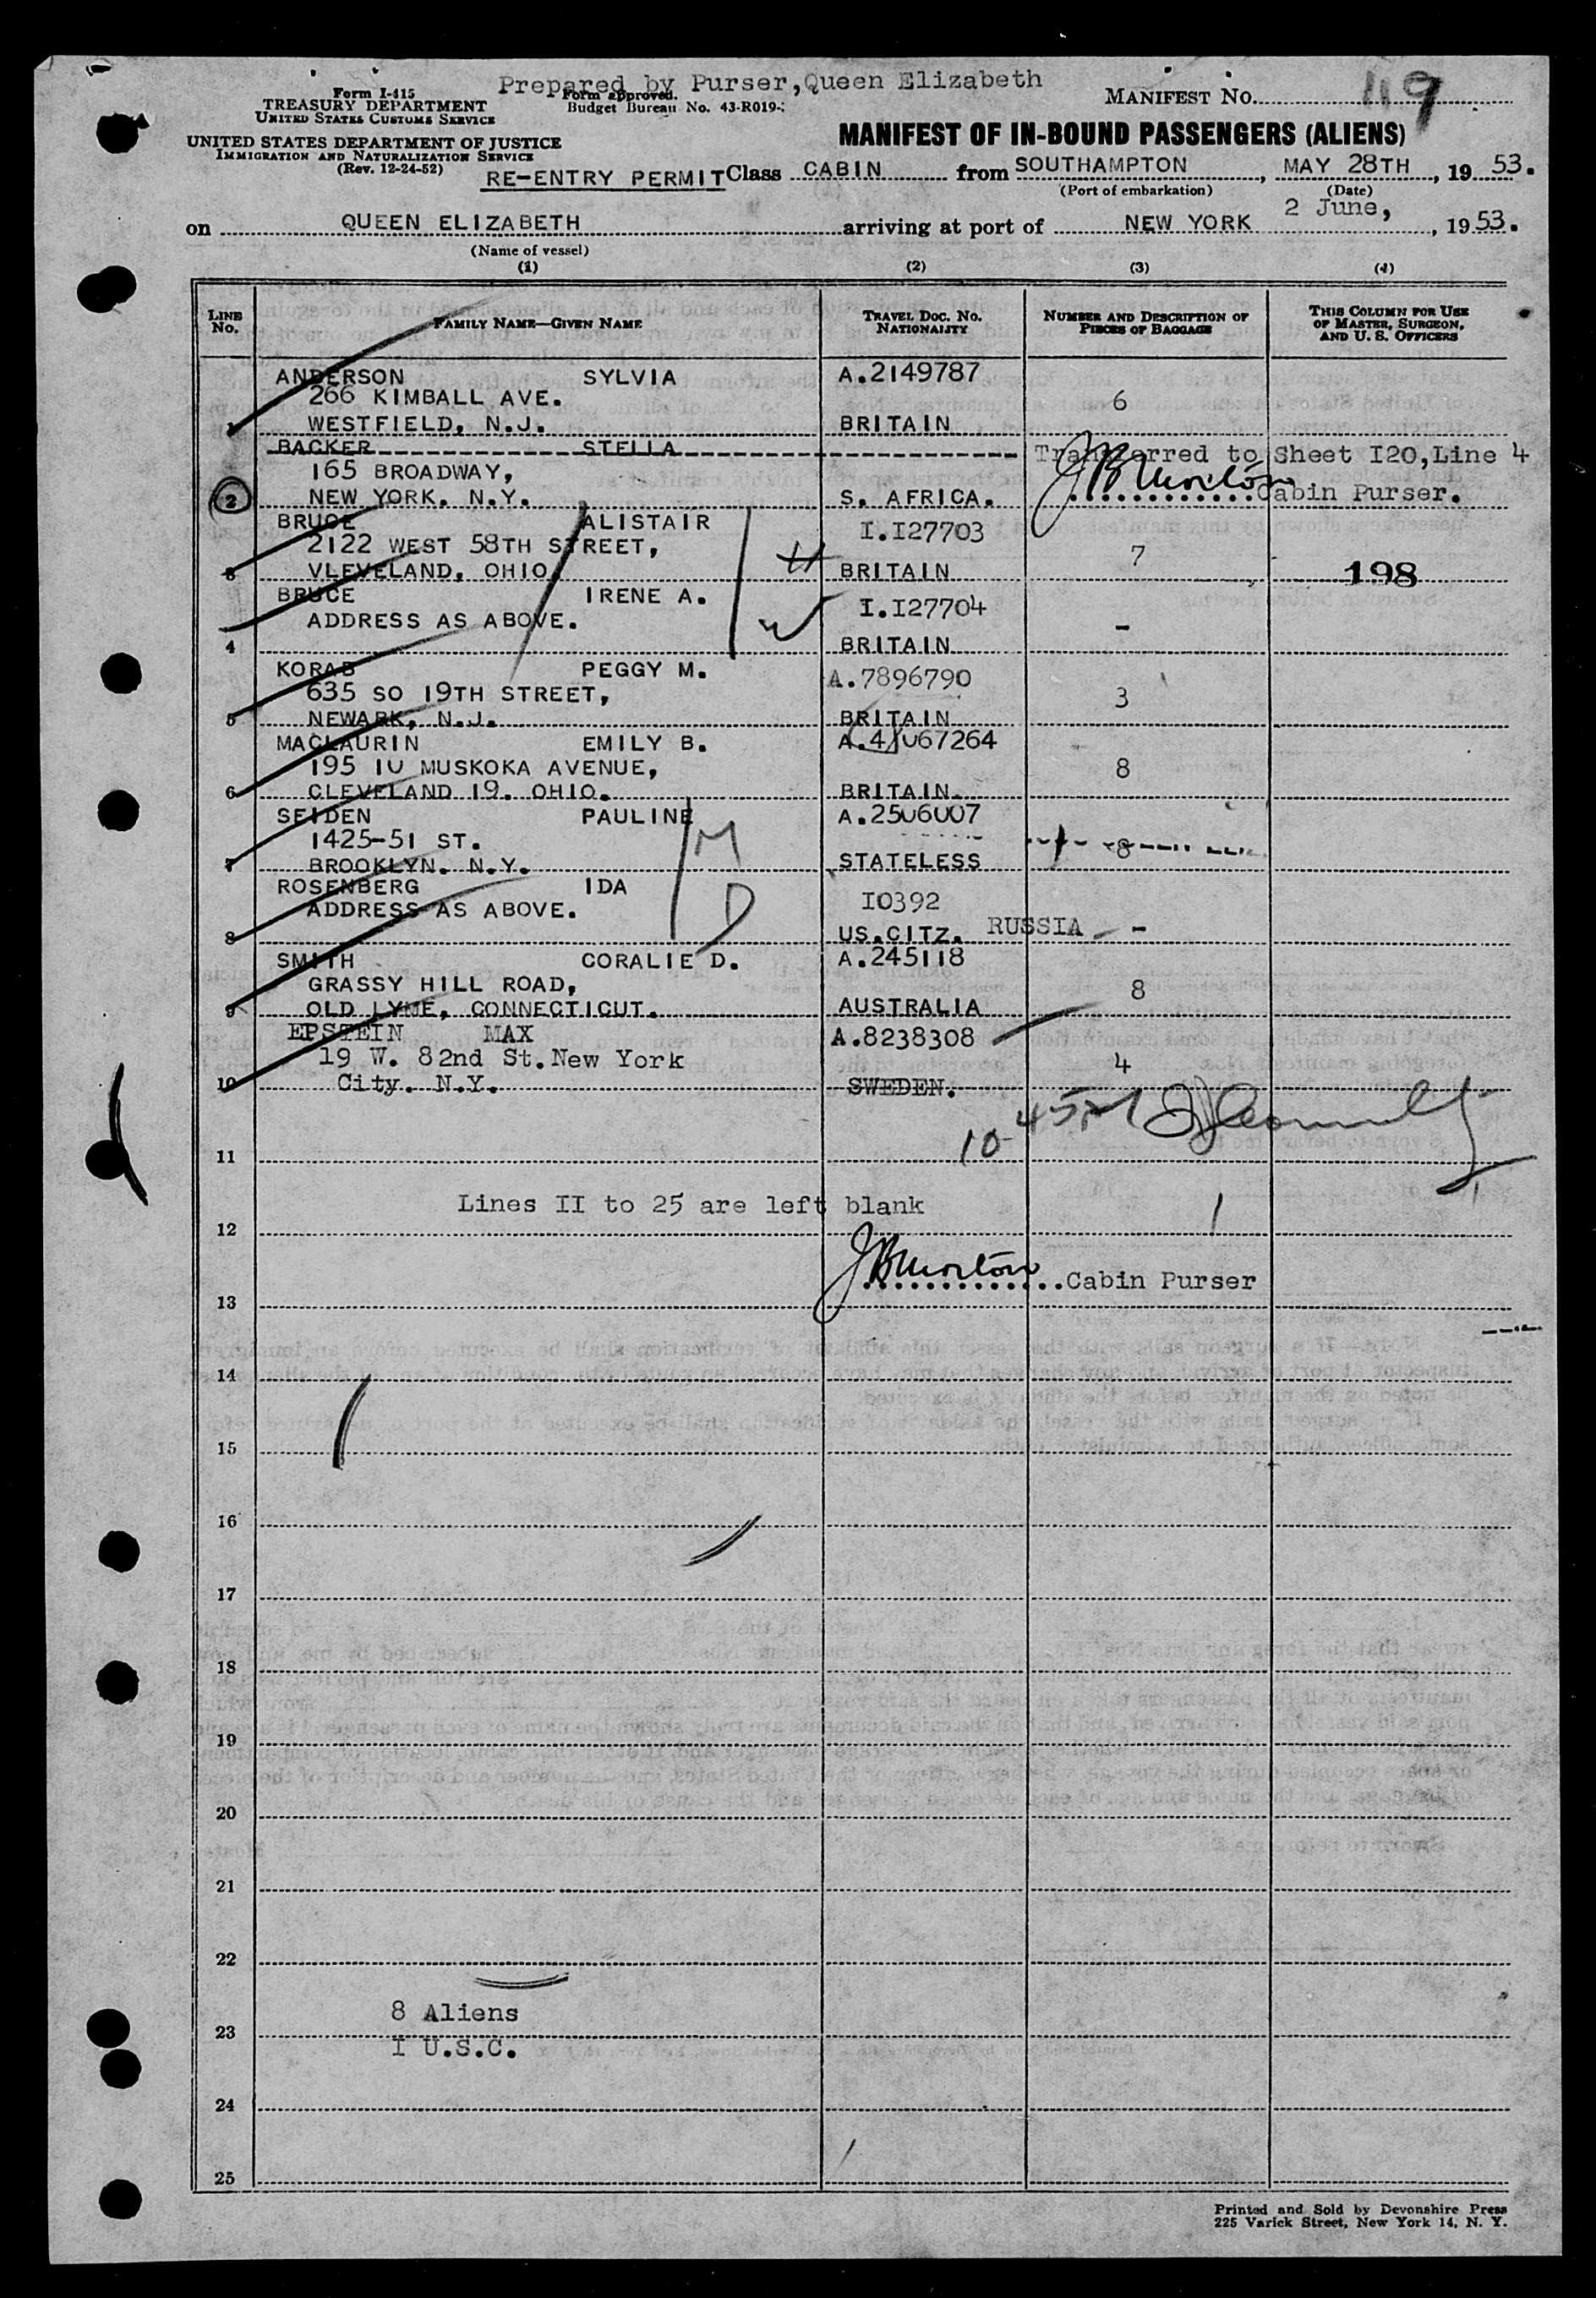 Prepared by Purser,Queen Elizabeth
Form I-415
TREASURY DEPARTMENT
UNITED STATES CUSTOMS SERVICE
Form approved.
Budget Bureau No. 43-R019-
MANIFEST No. 119
UNITED STATES DEPARTMENT OF JUSTICE
IMMIGRATION AND NATURALIZATION SERVICE
(Rev. 12-24-52)
MANIFEST OF IN-BOUND PASSENGERS (ALIENS)
RE-ENTRY PERMIT Class CABIN from SOUTHAMPTON, MAY 28TH, 19 53.
(Port of embarkation) (Date)
on QUEEN ELIZABETH arriving at port of NEW YORK 2 June, 19 53.
(Name of vessel)
(1) (2) (3) (4)
LINE No. FAMILY NAME—GIVEN NAME TRAVEL DOC. No. NATIONALITY NUMBER AND DESCRIPTION OF PIECES OF BAGGAGE THIS COLUMN FOR USE OF MASTER, SURGEON, AND U. S. OFFICERS
ANDERSON SYLVIA A.2149787
266 KIMBALL AVE. 6
1 WESTFIELD, N.J. BRITAIN
BACKER STELLA Transferred to Sheet I20,Line 4
165 BROADWAY, J B Morton
2 NEW YORK. N.Y. S. AFRICA. Cabin Purser.
BRUCE ALISTAIR I.I27703
2122 WEST 58TH STREET, H 7
3 VLEVELAND, OHIO BRITAIN 198
BRUCE IRENE A. I.I27704
ADDRESS AS ABOVE. W -
4 BRITAIN
KORAB PEGGY M. A.7896790
635 SO 19TH STREET, 3
5 NEWARK, N.J. BRITAIN
MACLAURIN EMILY B. A.4/067264
195 10 MUSKOKA AVENUE, 8
6 CLEVELAND 19. OHIO. BRITAIN
SEIDEN PAULINE A.2506007
1425-51 ST. M 8
7 BROOKLYN. N.Y. STATELESS
ROSENBERG IDA I0392
ADDRESS AS ABOVE. D
8 US.CITZ. RUSSIA -
SMITH CORALIE D. A.245118
GRASSY HILL ROAD, 8
9 OLD LYME, CONNECTICUT. AUSTRALIA
EPSTEIN MAX A.8238308
19 W. 82nd St.New York 4
10 City. N.Y. SWEDEN.
10-45 PM
11
Lines II to 25 are left blank
12
J B Morton
Cabin Purser
13
14
15
16
17
18
19
20
21
22
8 Aliens
23
I U.S.C.
24
25
Printed and Sold by Devonshire Press
225 Varick Street, New York 14, N. Y.